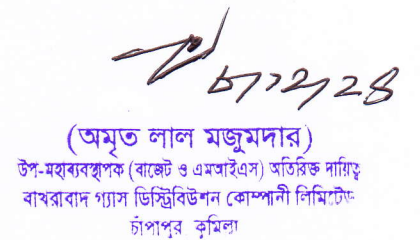 ৮/১২/২৪
(অমৃত লাল মজুমদার)
উপ-মহাব্যবস্থাপক (বাজেট ও এমআইএস) অতিরিক্ত দায়িত্ব
বাখরাবাদ গ্যাস ডিস্ট্রিবিউশন কোম্পানী লিমিটেড
চাঁপাপুর, কুমিল্লা